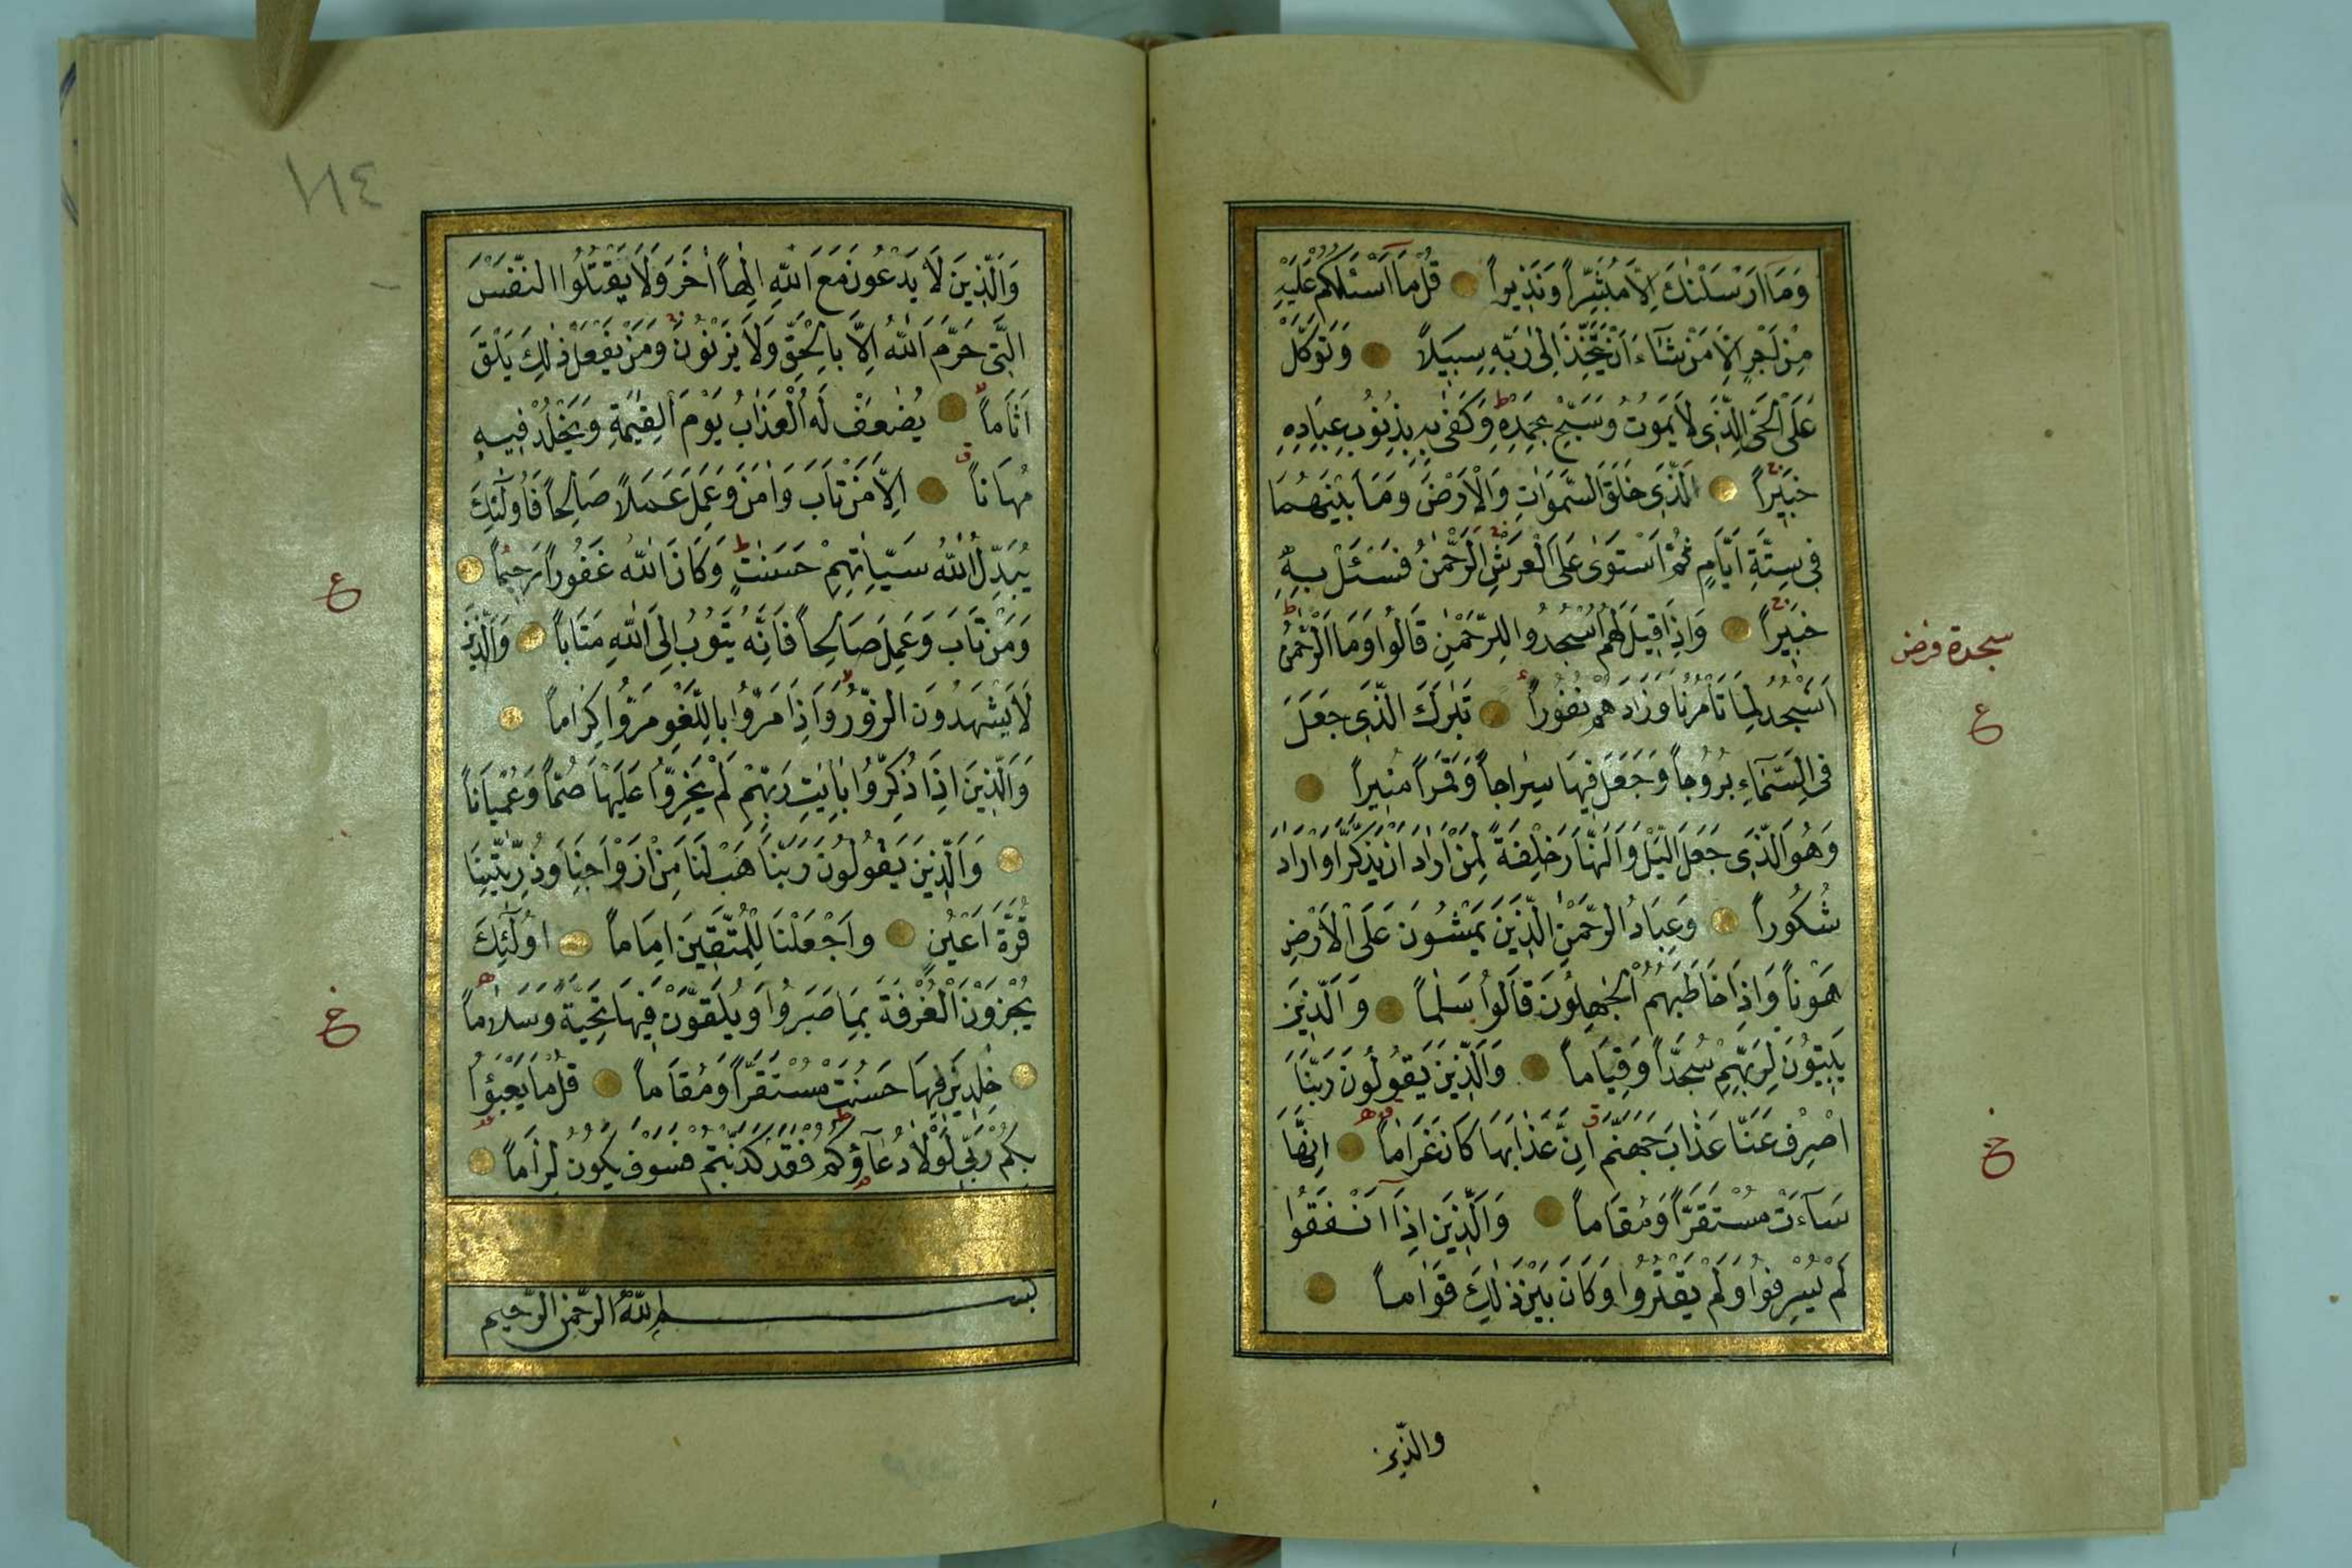 وَمَآ اَرْسَلْنٰكَ اِلَّا مُبَشِّرًا وَنَذِيرًا قُلْ مَآ اَسْئَلُكُمْ عَلَيْهِ
مِنْ اَجْرٍ اِلَّا مَنْ شَآءَ اَنْ يَتَّخِذَ اِلٰى رَبِّهٖ سَبِيلًا وَتَوَكَّلْ
عَلَى الْحَىِّ الَّذِى لَا يَمُوتُ وَسَبِّحْ بِحَمْدِهٖ وَكَفٰى بِهٖ بِذُنُوبِ عِبَادِهٖ
خَبِيرًا اَلَّذِى خَلَقَ السَّمٰوَاتِ وَالْاَرْضَ وَمَا بَيْنَهُمَا
فِى سِتَّةِ اَيَّامٍ ثُمَّ اسْتَوٰى عَلَى الْعَرْشِ الرَّحْمٰنُ فَسْئَلْ بِهٖ
خَبِيرًا وَاِذَا قِيلَ لَهُمُ اسْجُدُوا لِلرَّحْمٰنِ قَالُوا وَمَا الرَّحْمٰنُ
سجدة فرض
اَنَسْجُدُ لِمَا تَأْمُرُنَا وَزَادَهُمْ نُفُورًا تَبٰرَكَ الَّذِى جَعَلَ
ع
فِى السَّمَآءِ بُرُوجًا وَجَعَلَ فِيهَا سِرَاجًا وَقَمَرًا مُنِيرًا
وَهُوَ الَّذِى جَعَلَ الَّيْلَ وَالنَّهَارَ خِلْفَةً لِمَنْ اَرَادَ اَنْ يَذَّكَّرَ اَوْ اَرَادَ
شُكُورًا وَعِبَادُ الرَّحْمٰنِ الَّذِينَ يَمْشُونَ عَلَى الْاَرْضِ
هَوْنًا وَاِذَا خَاطَبَهُمُ الْجٰهِلُونَ قَالُوا سَلٰمًا وَالَّذِينَ
يَبِيتُونَ لِرَبِّهِمْ سُجَّدًا وَقِيَامًا وَالَّذِينَ يَقُولُونَ رَبَّنَا
اصْرِفْ عَنَّا عَذَابَ جَهَنَّمَ اِنَّ عَذَابَهَا كَانَ غَرَامًا اِنَّهَا
خ
سَآءَتْ مُسْتَقَرًّا وَمُقَامًا وَالَّذِينَ اِذَا اَنْفَقُوا
لَمْ يُسْرِفُوا وَلَمْ يَقْتُرُوا وَكَانَ بَيْنَ ذٰلِكَ قَوَامًا
والذين
وَالَّذِينَ لَا يَدْعُونَ مَعَ اللّٰهِ اِلٰهًا اٰخَرَ وَلَا يَقْتُلُوا النَّفْسَ
الَّتِى حَرَّمَ اللّٰهُ اِلَّا بِالْحَقِّ وَلَا يَزْنُونَ وَمَنْ يَفْعَلْ ذٰلِكَ يَلْقَ
اَثَامًا يُضٰعَفْ لَهُ الْعَذَابُ يَوْمَ الْقِيٰمَةِ وَيَخْلُدْ فِيهٖ
مُهَانًا اِلَّا مَنْ تَابَ وَاٰمَنَ وَعَمِلَ عَمَلًا صَالِحًا فَاُولٰٓئِكَ
يُبَدِّلُ اللّٰهُ سَيِّاٰتِهِمْ حَسَنٰتٍ وَكَانَ اللّٰهُ غَفُورًا رَحِيمًا
ع
وَمَنْ تَابَ وَعَمِلَ صَالِحًا فَاِنَّهُ يَتُوبُ اِلَى اللّٰهِ مَتَابًا وَالَّذِينَ
لَا يَشْهَدُونَ الزُّورَ وَاِذَا مَرُّوا بِاللَّغْوِ مَرُّوا كِرَامًا
وَالَّذِينَ اِذَا ذُكِّرُوا بِاٰيٰتِ رَبِّهِمْ لَمْ يَخِرُّوا عَلَيْهَا صُمًّا وَعُمْيَانًا
وَالَّذِينَ يَقُولُونَ رَبَّنَا هَبْ لَنَا مِنْ اَزْوَاجِنَا وَذُرِّيّٰتِنَا
قُرَّةَ اَعْيُنٍ وَاجْعَلْنَا لِلْمُتَّقِينَ اِمَامًا اُولٰٓئِكَ
يُجْزَوْنَ الْغُرْفَةَ بِمَا صَبَرُوا وَيُلَقَّوْنَ فِيهَا تَحِيَّةً وَسَلَامًا
خ
خٰلِدِينَ فِيهَا حَسُنَتْ مُسْتَقَرًّا وَمُقَامًا قُلْ مَا يَعْبَؤُا
بِكُمْ رَبِّى لَوْلَا دُعَآؤُكُمْ فَقَدْ كَذَّبْتُمْ فَسَوْفَ يَكُونُ لِزَامًا
بسم الله الرحمن الرحيم